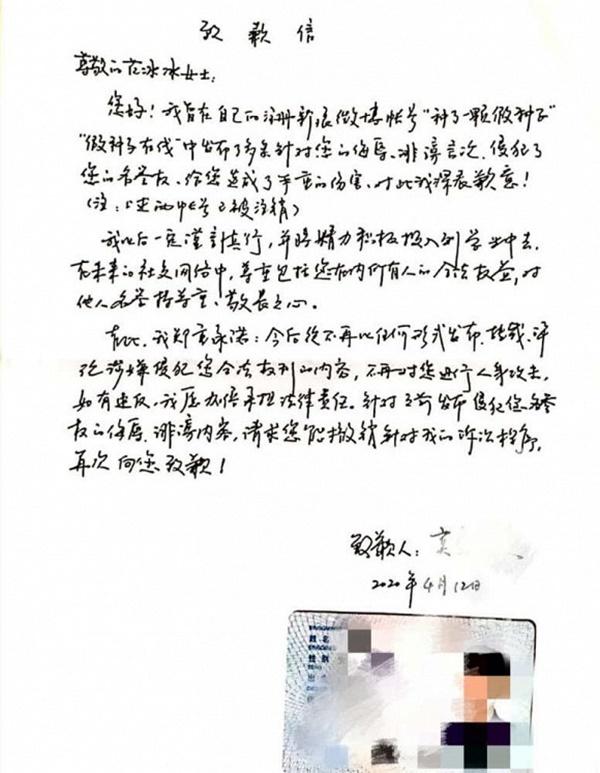 致歉信
尊敬的范冰冰女士:
您好!我曾在自己的注册新浪微博帐号“种了一颗假种子”
“假种子在线”中发布了多条针对您的侮辱、诽谤言论,侵犯了
您的名誉权,给您造成了严重的伤害,对此我深表歉意!
(注:上述两个帐号已被注销)
我以后一定谨言慎行,并将精力积极投入到学业中去,
在未来的社交网络中,尊重包括您在内所有人的合法权益,对
他人名誉持尊重、敬畏之心。
在此,我郑重承诺:今后绝不再以任何形式发布、转载、评
论涉嫌侵犯您合法权利的内容,不再对您进行人身攻击,
如有违反,我愿加倍承担法律责任。针对之前发布侵犯您名誉
权的侮辱、诽谤内容,请求您能撤销针对我的诉讼程序,
再次向您致歉!
致歉人:黄
2020年4月12日
姓名
性别